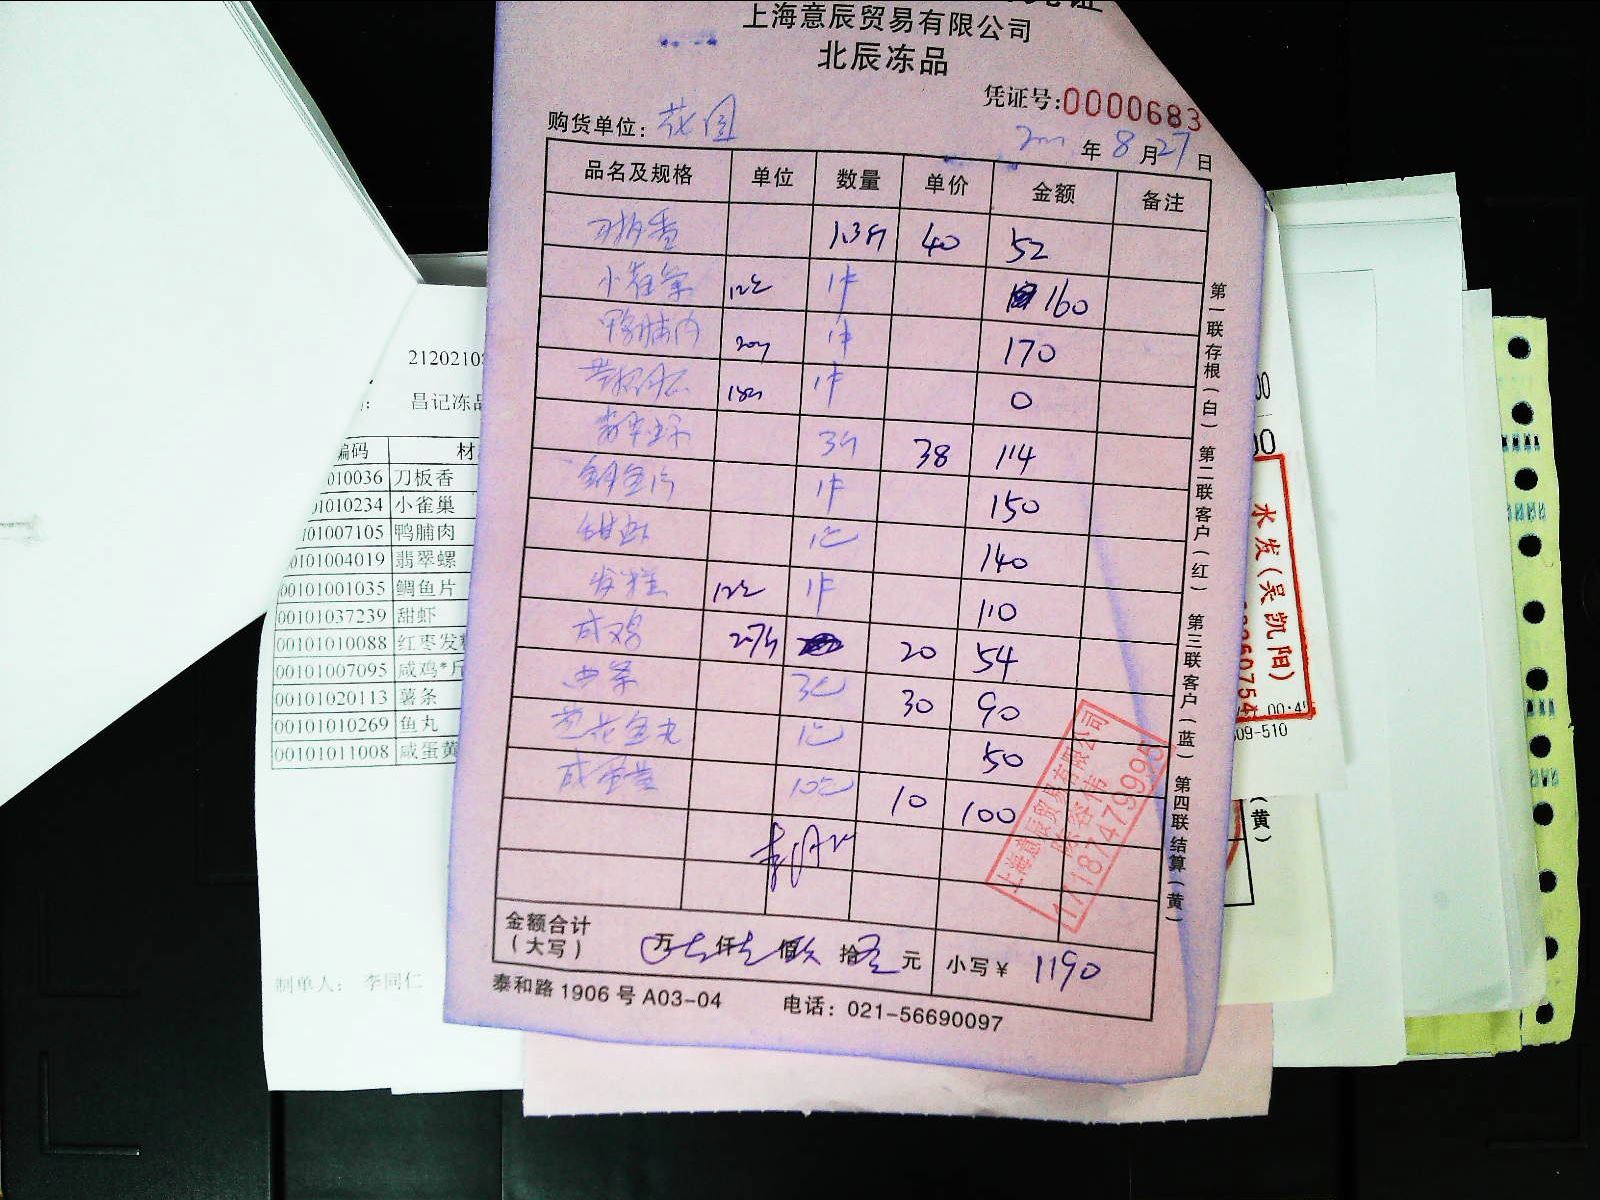 上海意辰贸易有限公司
北辰冻品
凭证号:0000683
购货单位: 花园
年 8 月 27 日
品名及规格 单位 数量 单价 金额 备注
刀板香 1.3斤 40 52
小雀巢 1件 160
鸭脯肉 1件 170
1件 0
翡翠螺 3斤 38 114
鲷鱼片 1件 150
甜虾 1包 140
发糕 1件 110
咸鸡 2.7斤 20 54
薯条 3包 30 90
鱼丸 1包 50
咸蛋黄 10包 10 100
金额合计
(大写) 万 仟 佰 拾 元 小写¥ 1190
泰和路1906号A03-04 电话: 021-56690097
第一联存根(白) 第二联客户(红) 第三联客户(蓝) 第四联结算(黄)
上海意辰贸易有限公司
17187479995
21202108
昌记冻品
编码 材
010036 刀板香
01010234 小雀巢
101007105 鸭脯肉
00101004019 翡翠螺
00101001035 鲷鱼片
00101037239 甜虾
00101010088 红枣发糕
00101007095 咸鸡*斤
00101020113 薯条
00101010269 鱼丸
00101011008 咸蛋黄
制单人: 李同仁
水发(吴凯阳)
09-510
(黄)